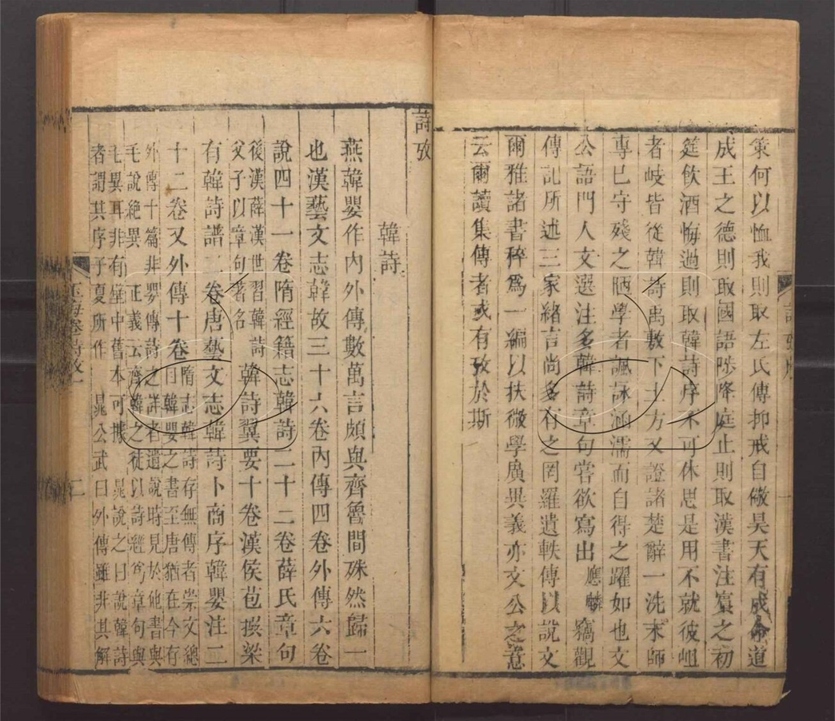 策何以恤我則取左氏傳抑戒自儆昊天有成命道
成王之德則取國語陟降庭止則取漢書注賓之初
筵飲酒悔過則取韓詩序不可休思是用不就彼岨
者岐皆從韓詩禹敷下土方又證諸楚辭一洗末師
專己守殘之陋學者諷詠涵濡而自得之躍如也文
公語門人文選注多韓詩章句嘗欲寫出應麟竊觀
傳記所述三家緒言尚多有之罔羅遺軼傳以說文
爾雅諸書稡為一編以扶微學廣異義亦文公之意
云爾讀集傳者或有攷於斯
詩攷
韓詩
燕韓嬰作內外傳數萬言頗與齊魯間殊然歸一
也漢藝文志韓故三十六卷內傳四卷外傳六卷
說四十一卷隋經籍志韓詩二十二卷薛氏章句
後漢薛漢世習韓詩
父子以章句著名
韓詩翼要十卷漢侯苞撰梁
有韓詩譜二卷唐藝文志韓詩卜商序韓嬰注二
十二卷又外傳十卷
隋志韓詩存無傳者崇文總
目韓嬰之書至唐猶在今存
外傳十篇非嬰傳詩之詳者遺說時見於他書與
毛說絕異 正義云齊韓之徒以詩經為章句與
毛異耳非有壁中舊本可據 晁說之曰說韓詩
者謂其序子夏所作 晁公武曰外傳雖非其解